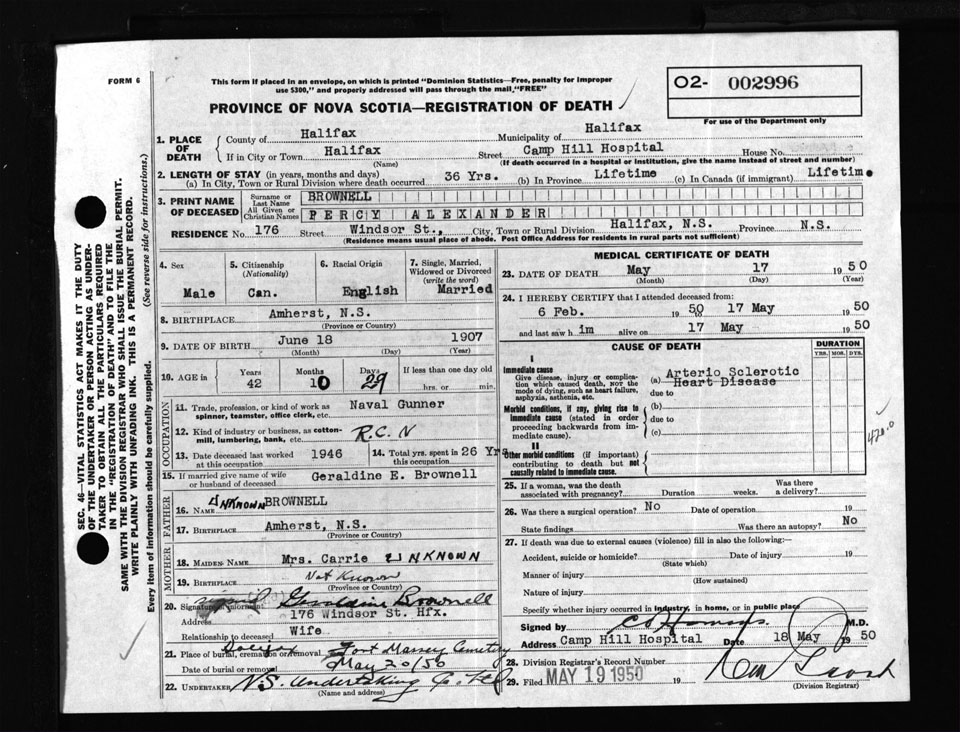 FORM 6
This form if placed in an envelope, on which is printed "Dominion Statistics—Free, penalty for improper
use $300," and properly addressed will pass through the mail, "FREE"
O2- 002996
For use of the Department only
PROVINCE OF NOVA SCOTIA—REGISTRATION OF DEATH
SEC. 46—VITAL STATISTICS ACT MAKES IT THE DUTY
OF THE UNDERTAKER OR PERSON ACTING AS UNDER-
TAKER TO OBTAIN ALL THE PARTICULARS REQUIRED
IN THE "REGISTRATION OF DEATH" AND TO FILE THE
SAME WITH THE DIVISION REGISTRAR WHO SHALL ISSUE THE BURIAL PERMIT.
WRITE PLAINLY WITH UNFADING INK. THIS IS A PERMANENT RECORD.
Every item of information should be carefully supplied. (See reverse side for instructions.)
1. PLACE OF DEATH County of Halifax Municipality of Halifax
If in City or Town Halifax Street Camp Hill Hospital House No.
(Name) (If death occurred in a hospital or institution, give the name instead of street and number)
2. LENGTH OF STAY (in years, months and days)
(a) In City, Town or Rural Division where death occurred 36 Yrs. (b) In Province Lifetime (c) In Canada (if immigrant) Lifetime
3. PRINT NAME OF DECEASED Surname or Last Name BROWNELL
All Given or Christian Names PERCY ALEXANDER
RESIDENCE No. 176 Street Windsor St., City, Town or Rural Division Halifax, N.S. Province N.S.
(Residence means usual place of abode. Post Office Address for residents in rural parts not sufficient)
4. Sex Male
5. Citizenship (Nationality) Can.
6. Racial Origin English
7. Single, Married, Widowed or Divorced (write the word) Married
8. BIRTHPLACE Amherst, N.S.
(Province or Country)
9. DATE OF BIRTH June 18 1907
(Month) (Day) (Year)
10. AGE in Years 42 Months 10 Days 29 If less than one day old hrs. or min.
OCCUPATION
11. Trade, profession, or kind of work as spinner, teamster, office clerk, etc. Naval Gunner
12. Kind of industry or business, as cotton-mill, lumbering, bank, etc. R.C.N
13. Date deceased last worked at this occupation 1946 14. Total yrs. spent in this occupation 26 Yrs
15. If married give name of wife or husband of deceased Geraldine E. Brownell
FATHER
16. NAME UNKNOWN BROWNELL
17. BIRTHPLACE Amherst, N.S.
(Province or Country)
MOTHER
18. MAIDEN NAME Mrs. Carrie UNKNOWN
19. BIRTHPLACE Not Known
(Province or Country)
20. Signature of informant Geraldine Brownell
Address 176 Windsor St. Hfx.
Relationship to deceased Wife
21. Place of burial, cremation or removal Halifax Fort Massey Cemetery
Date of burial or removal May 20/50
22. UNDERTAKER N.S. Undertaking Co. Ltd
(Name and address)
MEDICAL CERTIFICATE OF DEATH
23. DATE OF DEATH May 17 1950
(Month) (Day) (Year)
24. I HEREBY CERTIFY that I attended deceased from:
6 Feb. 1950 to 17 May 1950
and last saw him alive on 17 May 1950
CAUSE OF DEATH DURATION
YRS. MOS. DYS.
I
Immediate cause
Give disease, injury or complication which caused death, NOT the mode of dying, such as heart failure, asphyxia, asthenia, etc.
(a) Arterio Sclerotic
Heart Disease
due to
Morbid conditions, if any, giving rise to immediate cause (stated in order proceeding backwards from immediate cause).
(b)
due to
(c)
420.0
II
Other morbid conditions (if important) contributing to death but not causally related to immediate cause.
25. If a woman, was the death associated with pregnancy? Duration weeks. Was there a delivery?
26. Was there a surgical operation? No Date of operation 19
State findings Was there an autopsy? No
27. If death was due to external causes (violence) fill in also the following:—
Accident, suicide or homicide? Date of injury 19
(State which)
Manner of injury
(How sustained)
Nature of injury
Specify whether injury occurred in industry, in home, or in public place
Signed by M.D.
Address Camp Hill Hospital Date 18 May 1950
28. Division Registrar's Record Number
29. Filed MAY 19 1950 19
(Division Registrar)